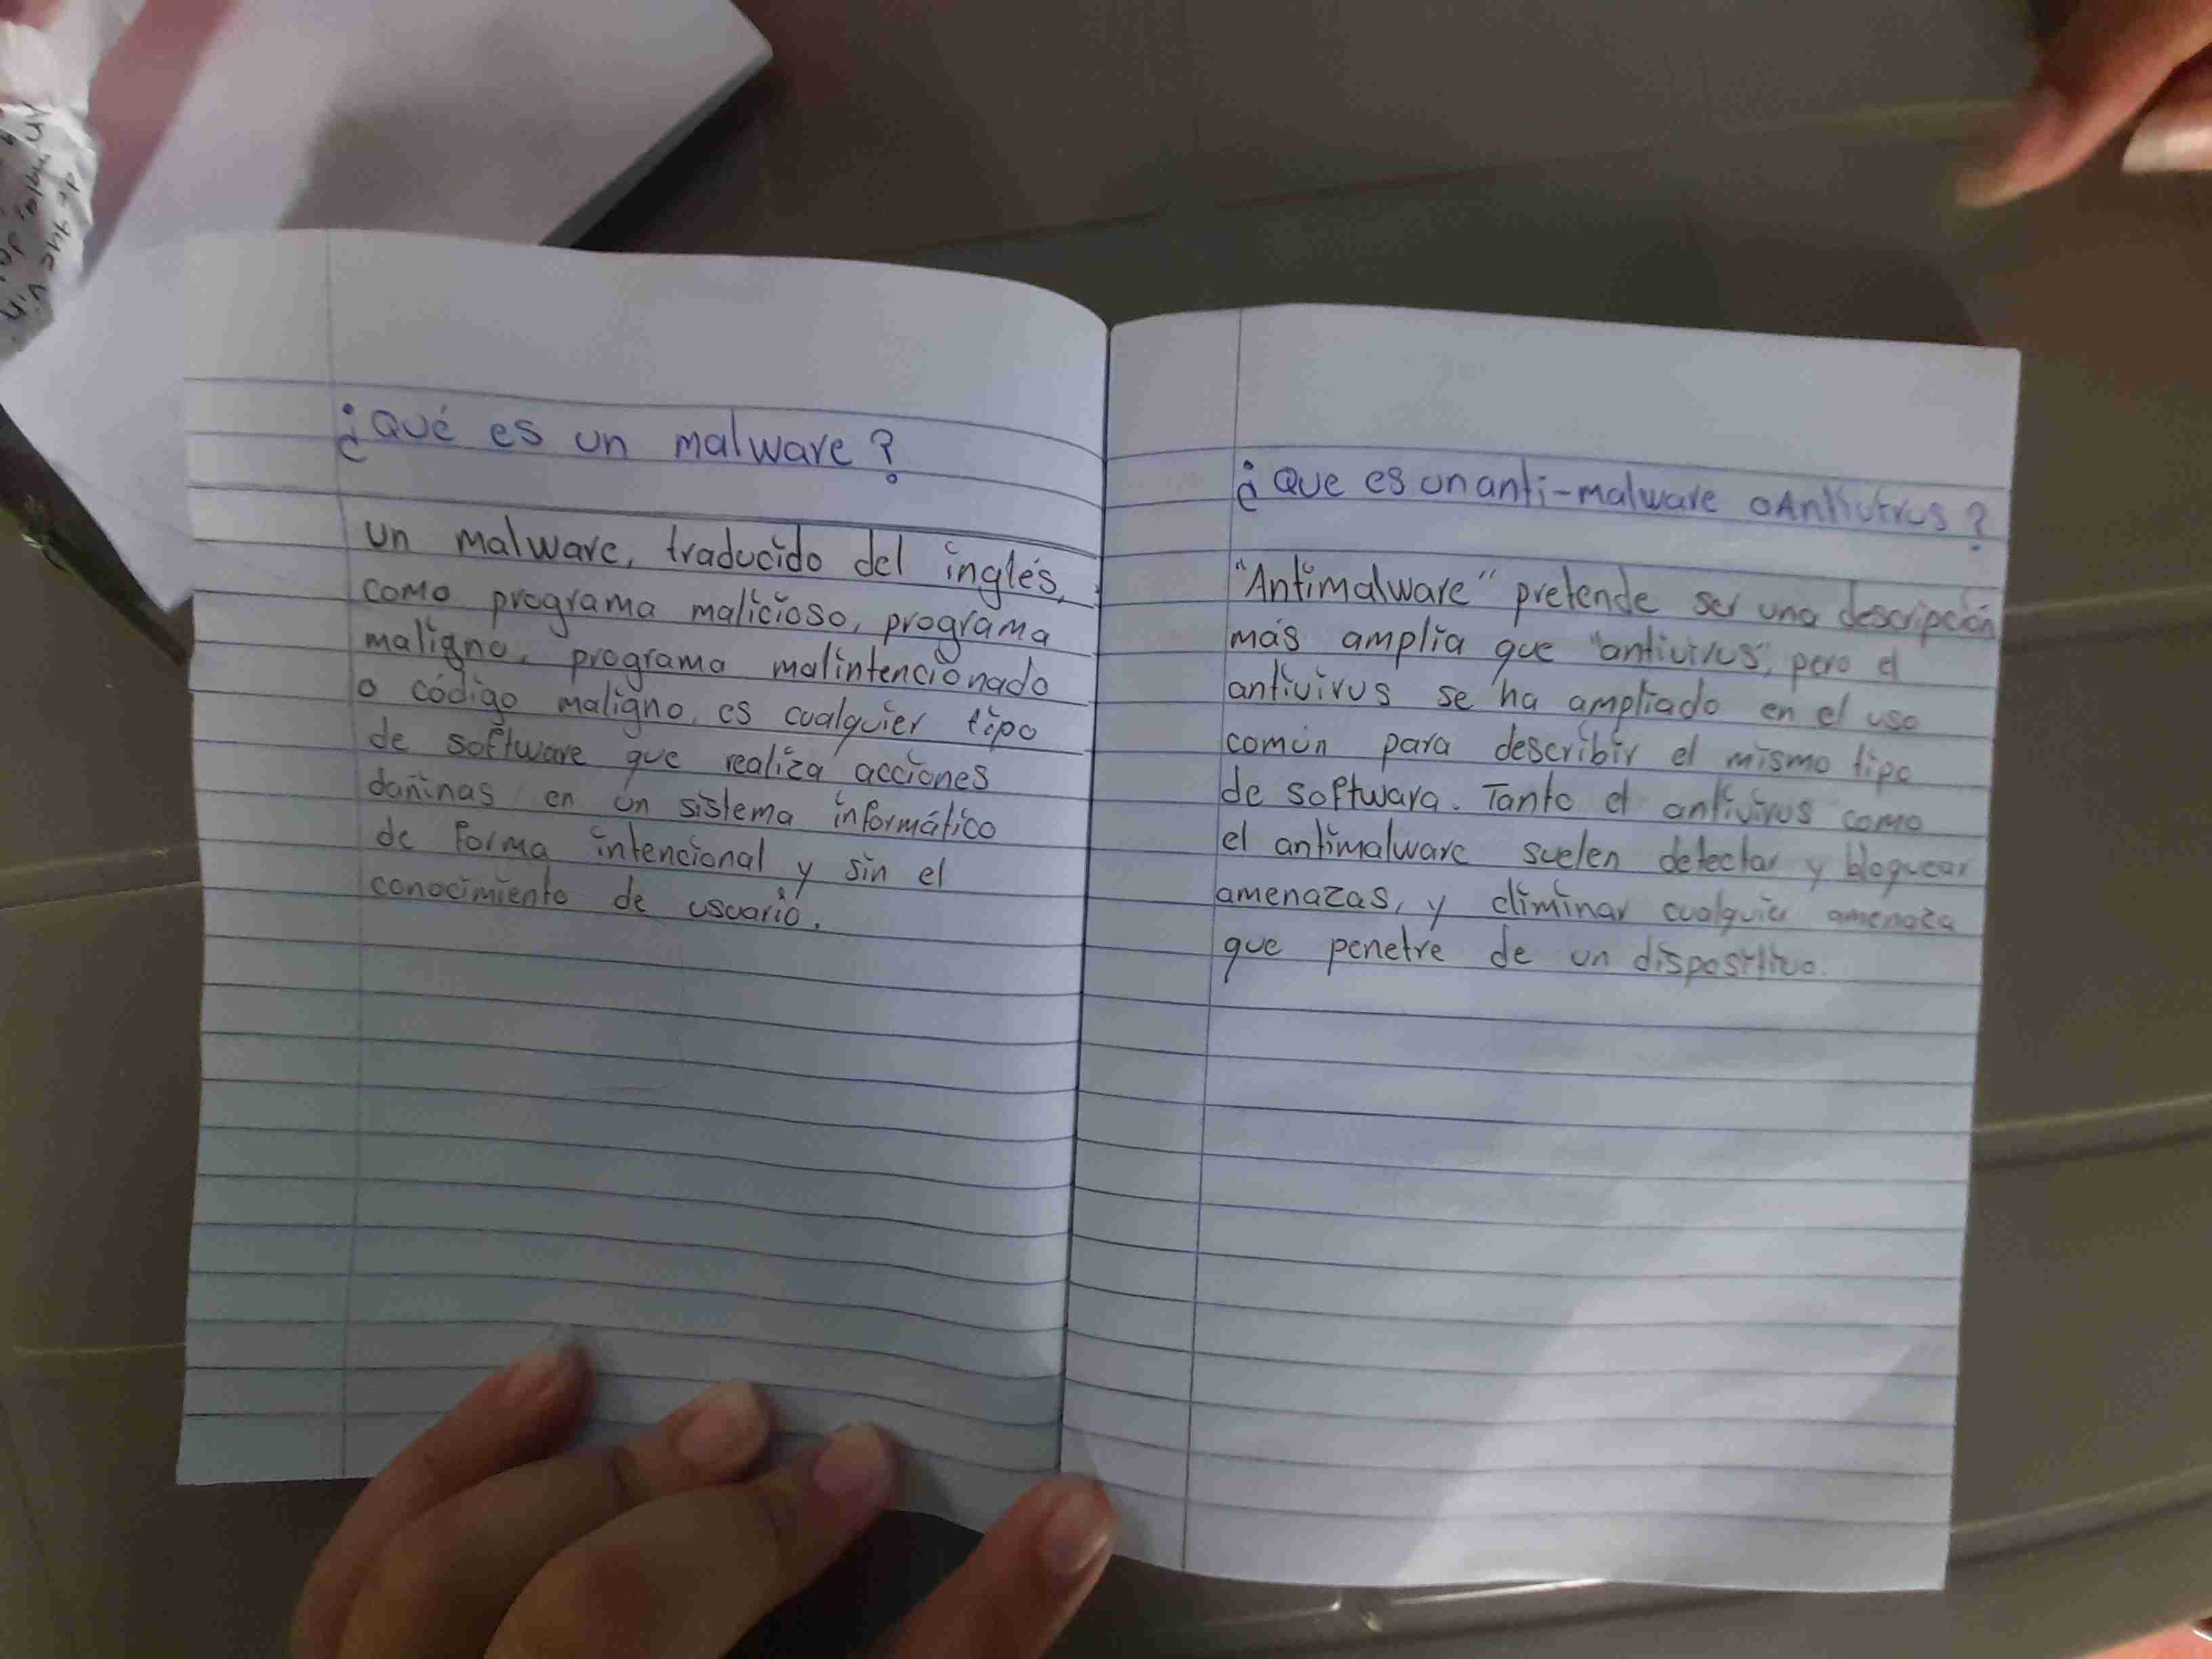 ¿Qué es un malware?
un malware, traducido del inglés,
como programa malicioso, programa
maligno, programa malintencionado
o código maligno, es cualquier tipo
de software que realiza acciones
dañinas en un sistema informático
de forma intencional y sin el
conocimiento de usuario.
¿Que es un anti-malware o Antivirus?
"Antimalware" pretende ser una descripción
más amplia que "antivirus", pero el
antivirus se ha ampliado en el uso
común para describir el mismo tipo
de softwara. Tanto el antivirus como
el antimalware suelen detectar y bloquear
amenazas, y eliminar cualquier amenaza
que penetre de un dispositivo.